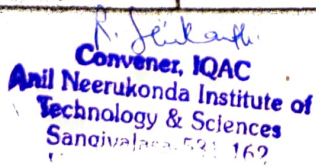 Convener, IQAC
Anil Neerukonda Institute of
Technology & Sciences
Sangivalasa. 531 162